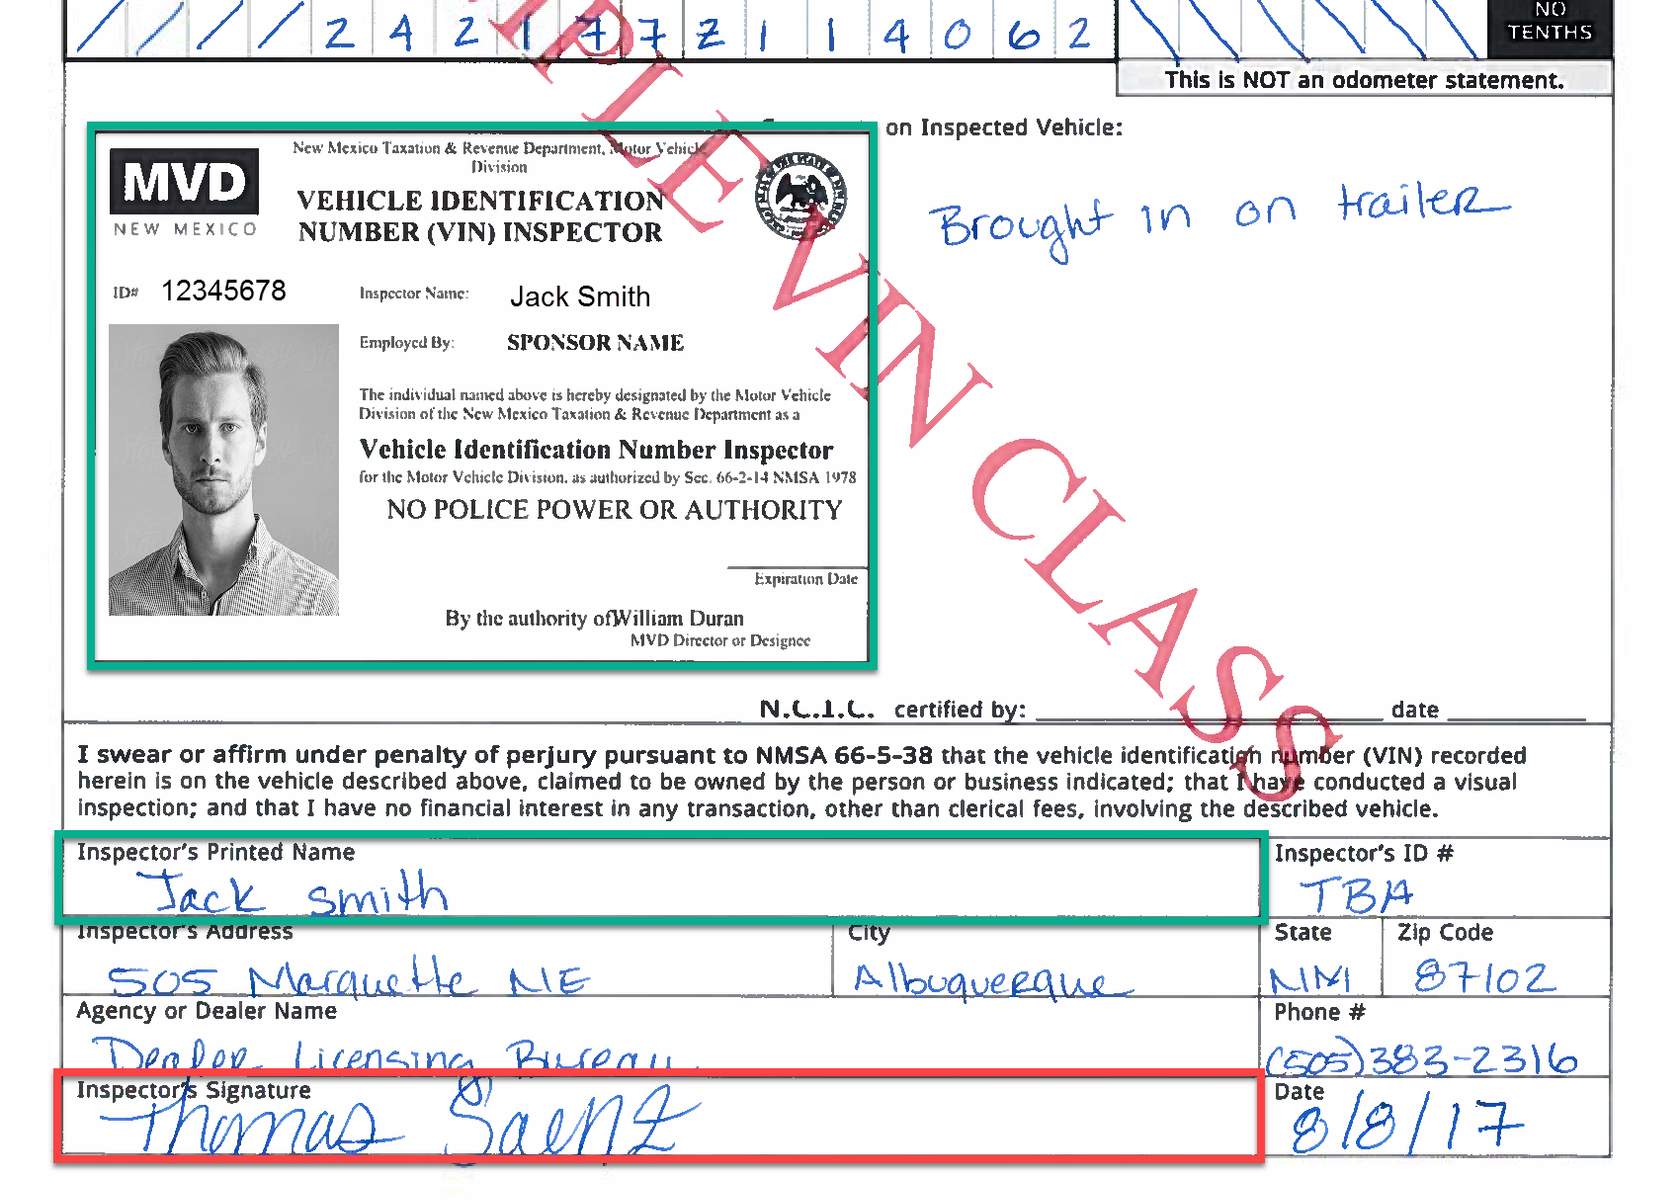 / / / / 2 4 2 1 7 7 Z 1 1 4 0 6 2 \ \ \ \ \ \ NO
TENTHS
This is NOT an odometer statement.
on Inspected Vehicle:
Brought in on trailer
MVD
NEW MEXICO
New Mexico Taxation & Revenue Department, Motor Vehicle
Division
VEHICLE IDENTIFICATION
NUMBER (VIN) INSPECTOR
ID# 12345678
Inspector Name: Jack Smith
Employed By: SPONSOR NAME
The individual named above is hereby designated by the Motor Vehicle
Division of the New Mexico Taxation & Revenue Department as a
Vehicle Identification Number Inspector
for the Motor Vehicle Division, as authorized by Sec. 66-2-14 NMSA 1978
NO POLICE POWER OR AUTHORITY
Expiration Date
By the authority of William Duran
MVD Director or Designee
PLE VIN CLASS
N.C.I.C. certified by: date
I swear or affirm under penalty of perjury pursuant to NMSA 66-5-38 that the vehicle identification number (VIN) recorded
herein is on the vehicle described above, claimed to be owned by the person or business indicated; that I have conducted a visual
inspection; and that I have no financial interest in any transaction, other than clerical fees, involving the described vehicle.
Inspector's Printed Name Inspector's ID #
Jack Smith TBA
Inspector's Address City State Zip Code
505 Marquette NE Albuquerque NM 87102
Agency or Dealer Name Phone #
Dealer Licensing Bureau (505)383-2316
Inspector's Signature Date
Thomas Saenz 8/8/17